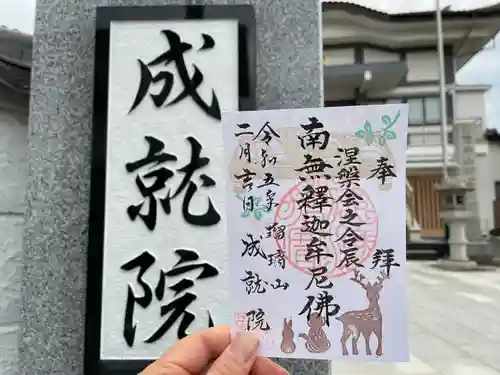 成就院
奉拝
涅槃会之令辰
南無釋迦牟尼佛
令和五年 瑠璃山
二月吉日 成就院